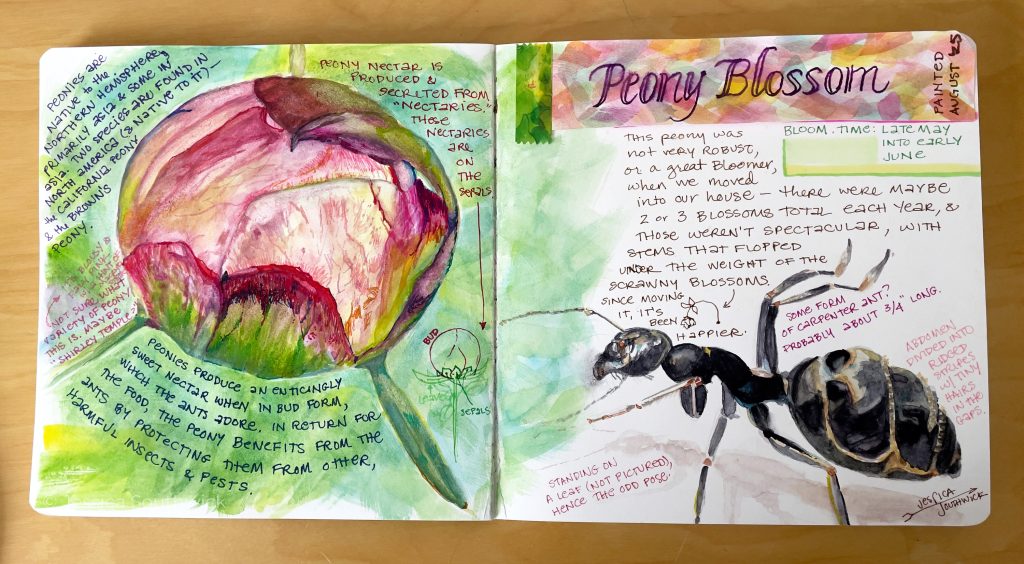 PEONIES ARE
NATIVE to the
NORTHERN HEMISPHERE,
PRIMARILY ASIA & SOME IN
ASIA. TWO SPECIES ARE FOUND IN
NORTH AMERICA (& NATIVE TO IT) —
the CALIFORNIA PEONY
& the BROWNS
PEONY.
NOT SURE WHAT
VARIETY OF PEONY
THIS IS. MAYBE A
"SHIRLEY TEMPLE"?
PEONY NECTAR IS
PRODUCED &
SECRETED FROM
"NECTARIES."
THESE
NECTARIES
ARE
ON
THE
SEPALS
BUD
LEAVES
SEPALS
PEONIES PRODUCE AN ENTICINGLY
SWEET NECTAR WHEN IN BUD FORM,
WHICH THE ANTS ADORE. IN RETURN FOR
THE FOOD, THE PEONY BENEFITS FROM THE
ANTS BY PROTECTING THEM FROM OTHER,
HARMFUL INSECTS & PESTS.
Peony Blossom
PAINTED
AUGUST '25
BLOOM TIME: LATE MAY
INTO EARLY
JUNE
THIS PEONY WAS
NOT VERY ROBUST,
OR A GREAT BLOOMER,
WHEN WE MOVED
INTO OUR HOUSE — THERE WERE MAYBE
2 OR 3 BLOSSOMS TOTAL EACH YEAR, &
THOSE WEREN'T SPECTACULAR, WITH
STEMS THAT FLOPPED
UNDER THE WEIGHT OF THE
SCRAWNY BLOSSOMS.
SINCE MOVING
IT, IT'S
BEEN
HAPPIER.
SOME FORM
OF CARPENTER ANT?
PROBABLY ABOUT 3/4" LONG.
ABDOMEN
DIVIDED INTO
RIDGED
STRIPES
W/ TINY
HAIRS
IN THE
GAPS.
STANDING ON
A LEAF (NOT PICTURED),
HENCE THE ODD POSE.
JESSICA
SOUTHWICK